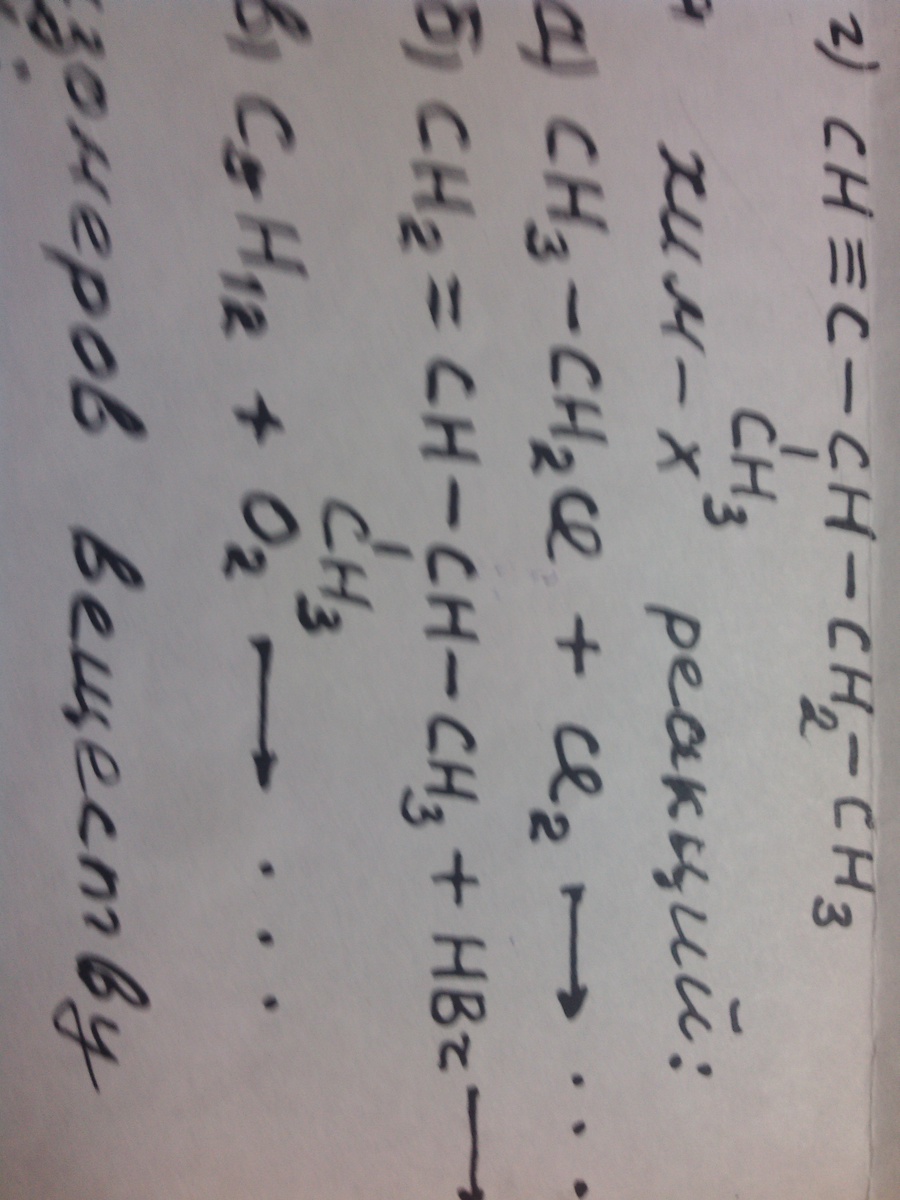 г) CH≡C–CH–CH₂–CH₃
CH₃
хим-х реакций:
а) CH₃–CH₂Cl + Cl₂ → ...
б) CH₂=CH–CH–CH₃ + HBr →
CH₃
в) C₅H₁₂ + O₂ → ...
зомеров веществу